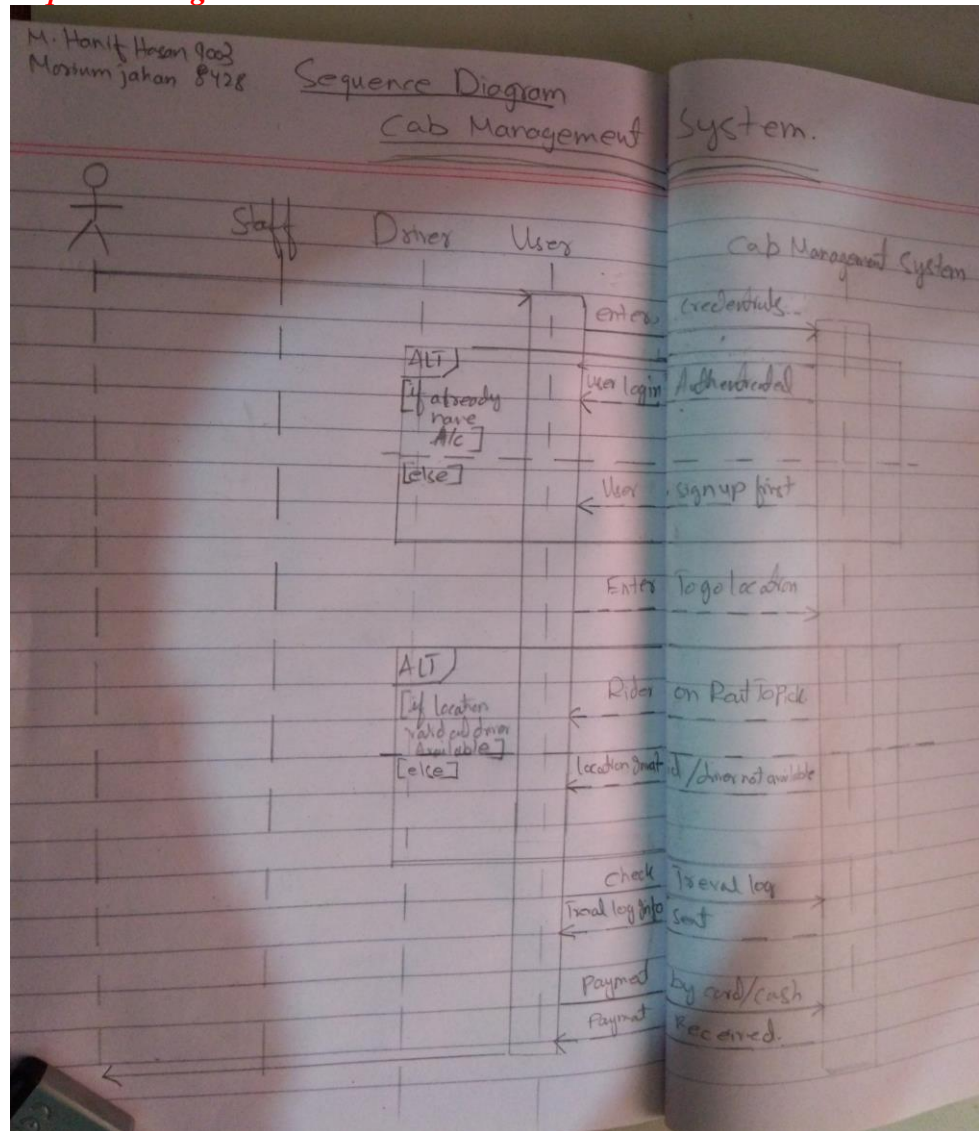 M. Hanif Hasan 9003
Morium jahan 8428
Sequence Diagram
Cab Management System.
Staff Driver User Cab Management System
enter credentials
ALT
[if already
have
A/c]
User login Authenticated
[else]
User signup first
Enter To go location
ALT
[if location
valid and driver
Available]
Rider on Rout To pick
[else]
location invalid / driver not available
Check Treval log
Traval log Info sent
Payment by card/cash
Payment Received.